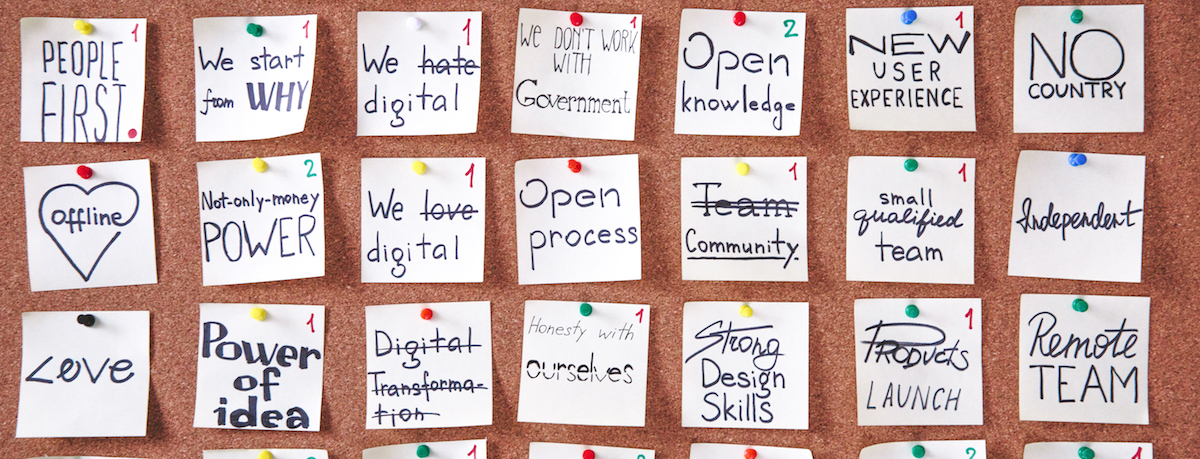 PEOPLE 1
FIRST
We start 1
from WHY
We hate 1
digital
We DON'T WORK 1
WITH
Government
Open 2
knowledge
NEW 1
USER
EXPERIENCE
NO
COUNTRY
offline
Not-only-money 2
POWER
We love 1
digital
Open
process
Team 1
Community
small 1
qualified
team
Independent
Love
Power 1
of
idea
Digital
Transforma-
tion
Honesty with 1
ourselves
Strong
Design
Skills
PRODUCTS 1
LAUNCH
Remote
TEAM
1
1
2
2